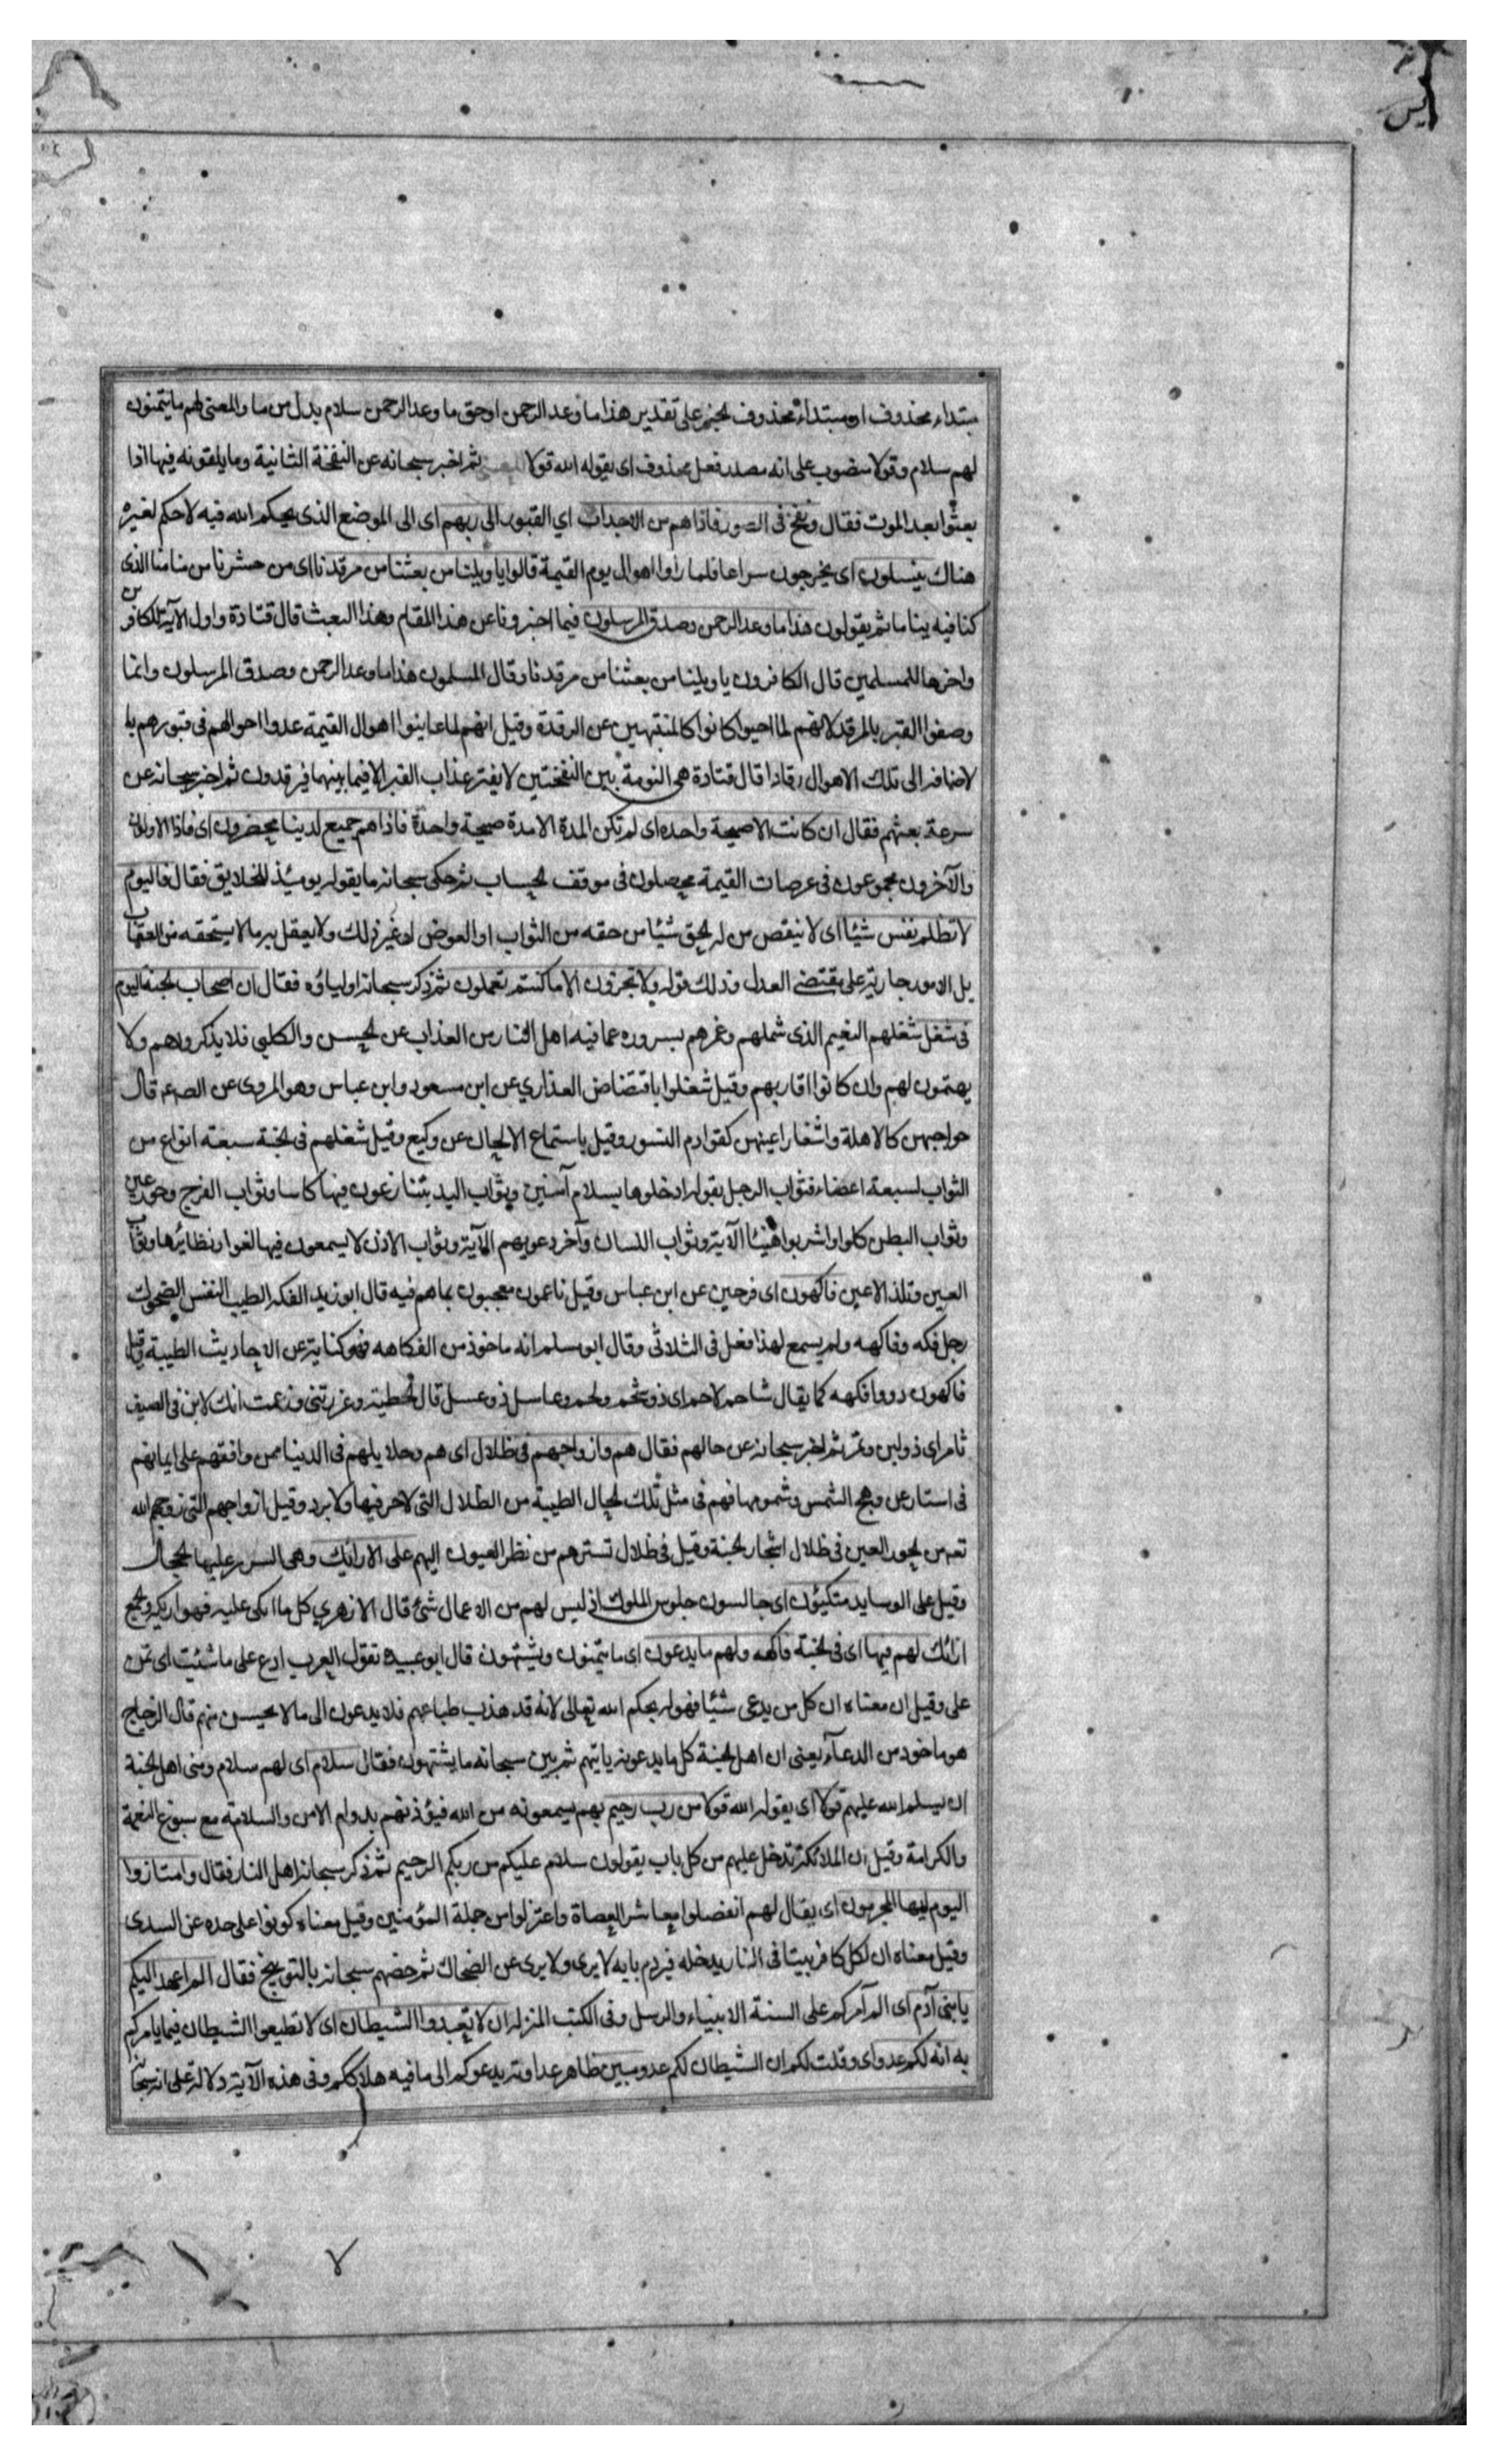 يس
مبتداء محذوف او مبتداء محذوف الخبر على تقدير هذا ما وعد الرحمن او حق ما وعد الرحمن سلام بدل من ما والمعنى لهم ما يتمنون
لهم سلام وقولا منصوب على انه مصدر فعل محذوف اى يقوله الله قولا ثم اخبر سبحانه عن النفخة الثانية وما يلقونه فيها اذا
بعثوا بعد الموت فقال ونفخ فى الصور فاذا هم من الاجداث اي القبور الى ربهم اى الى الموضع الذى يحكم الله فيه لا حكم لغيره
هناك ينسلون اى يخرجون سراعا فلما راوا اهوال يوم القيمة قالوا يا ويلنا من بعثنا من مرقدنا اى من حشرنا من منامنا الذى
كنا فيه نياما ثم يقولون هذا ما وعد الرحمن وصدق المرسلون فيما اخبرونا عن هذا المقام وهذا البعث قال قتادة واول الآية للكافرين
واخرها للمسلمين قال الكافرون يا ويلنا من بعثنا من مرقدنا وقال المسلمون هذا ما وعد الرحمن وصدق المرسلون وانما
وصفوا القبر بالمرقد لانهم لما احيوا كانوا كالمنتبهين عن الرقدة وقيل انهم لما عاينوا اهوال القيمة عدوا احوالهم فى قبورهم با
لاضافه الى تلك الاهوال رقادا قال قتادة هى النومة بين النفختين لا يفتر عذاب القبر الا فيما بينهما فيرقدون ثم اخبر سبحانه عن
سرعة بعثهم فقال ان كانت الا صيحة واحده اى لم تكن المدة الا مدة صيحة واحدة فاذا هم جميع لدينا محضرون اى فاذا الاولون
والآخرون مجموعون فى عرصات القيمة محصلون فى موقف الحساب ثم حكى سبحانه ما يقوله يومئذ للخلايق فقال فاليوم
لا تظلم نفس شيئا اى لا ينقص من له الحق شيئا من حقه من الثواب او العوض او غير ذلك ولا يفعل به ما لا يستحقه من العقاب
بل الامور جارية على مقتضى العدل وذلك قوله ولا تجزون الا ما كنتم تعملون ثم ذكر سبحانه اولياؤه فقال ان اصحاب الجنة اليوم
فى شغل شغلهم النعيم الذى شملهم وغمرهم بسروره عما فيه اهل النار من العذاب عن الحسن والكلبى فلا يذكرونهم ولا
يهتمون لهم وان كانوا اقاربهم وقيل شغلوا باقتضاض العذاري عن ابن مسعود وابن عباس وهو المروى عن الصم قال
حواجبهن كالاهلة واشفار اعينهن كقوادم النسور وقيل باستماع الالحان عن وكيع وقيل شغلهم فى الجنة سبعة انواع من
الثواب لسبعة اعضاء فثواب الرجل بقوله ادخلوها بسلام آمنين وثواب اليد يتنازعون فيها كاسا وثواب الفرج وحور عين
وثواب البطن كلوا واشربوا هنيئا الآية وثواب اللسان وآخر دعويهم الآية وثواب الاذن لا يسمعون فيها لغوا ونظائرها وثواب
العين وتلذ الاعين فاكهون اى فرحين عن ابن عباس وقيل ناعمون معجبون بما هم فيه قال ابو زيد الفكه الطيب النفس الضحوك
رجل فكه وفاكهه ولم يسمع لهذا فعل فى الثلاثى وقال ابو مسلم انه ماخوذ من الفكاهه فهو كناية عن الاحاديث الطيبة وقيل
فاكهون ذووا فاكهه كما يقال شاحم لاحم اى ذو شحم ولحم وعاسل ذو عسل قال الحطيئة وغررتنى وزعمت انك لابن فى الصيف
تامر اى ذو لبن وتمر ثم اخبر سبحانه عن حالهم فقال هم وازواجهم فى ظلال اى هم وحلايلهم فى الدنيا ممن وافقهم على ايمانهم
فى استار عن وهج الشمس وشمومها فهم فى مثل تلك الحال الطيبة من الظلال التى لا حر فيها ولا برد وقيل ازواجهم التى زوجهم الله
تعا من الحور العين فى ظلال اشجار الجنة وقيل فى ظلال تسترهم من نظر العيون اليهم على الارايك وهى السرر عليها الحجال
وقيل على الوسايد متكئون اى جالسون جلوس الملوك اذ ليس لهم من الاعمال شئ قال الازهري كل ما اتكى عليه فهو اريكة والجمع
ارائك لهم فيها اى فى الجنة فاكهه ولهم ما يدعون اى ما يتمنون ويشتهون قال ابو عبيده تقول العرب ادع على ما شئت اى تمن
على وقيل ان معناه ان كل من يدعى شيئا فهو له بحكم الله تعالى لانه قد هذب طباعهم فلا يدعون الى ما لا يحسن منهم قال الزجاج
هو ماخوذ من الدعآء يعنى ان اهل الجنة كل ما يدعونه ياتيهم ثم بين سبحانه ما يشتهون فقال سلام اى لهم سلام ومنى اهل الجنة
ان يسلم الله عليهم قولا اى يقوله الله قولا من رب رحيم بهم يسمعونه من الله فيؤذنهم بدوام الامن والسلامة مع سبوغ النعمة
والكرامة وقيل ان الملائكة تدخل عليهم من كل باب يقولون سلام عليكم من ربكم الرحيم ثم ذكر سبحانه اهل النار فقال وامتازوا
اليوم ايها المجرمون اى يقال لهم انفصلوا معاشر العصاة واعتزلوا من جملة المؤمنين وقيل معناه كونوا على حده عن السدى
وقيل معناه ان لكل كافر بيتا فى النار يدخله فيردم بابه لا يرى ولا يرى عن الضحاك ثم خصهم سبحانه بالتوبيخ فقال الم اعهد اليكم
يا بنى آدم اى الم آمركم على السنة الانبياء والرسل وفى الكتب المنزله ان لا تعبدوا الشيطان اى لا تطيعوا الشيطان فيما يامركم
به انه لكم عدو اى وقلت لكم ان الشيطان لكم عدو مبين ظاهر عداوته يدعوكم الى ما فيه هلاككم وفى هذه الآية دلالة على انه سبحا